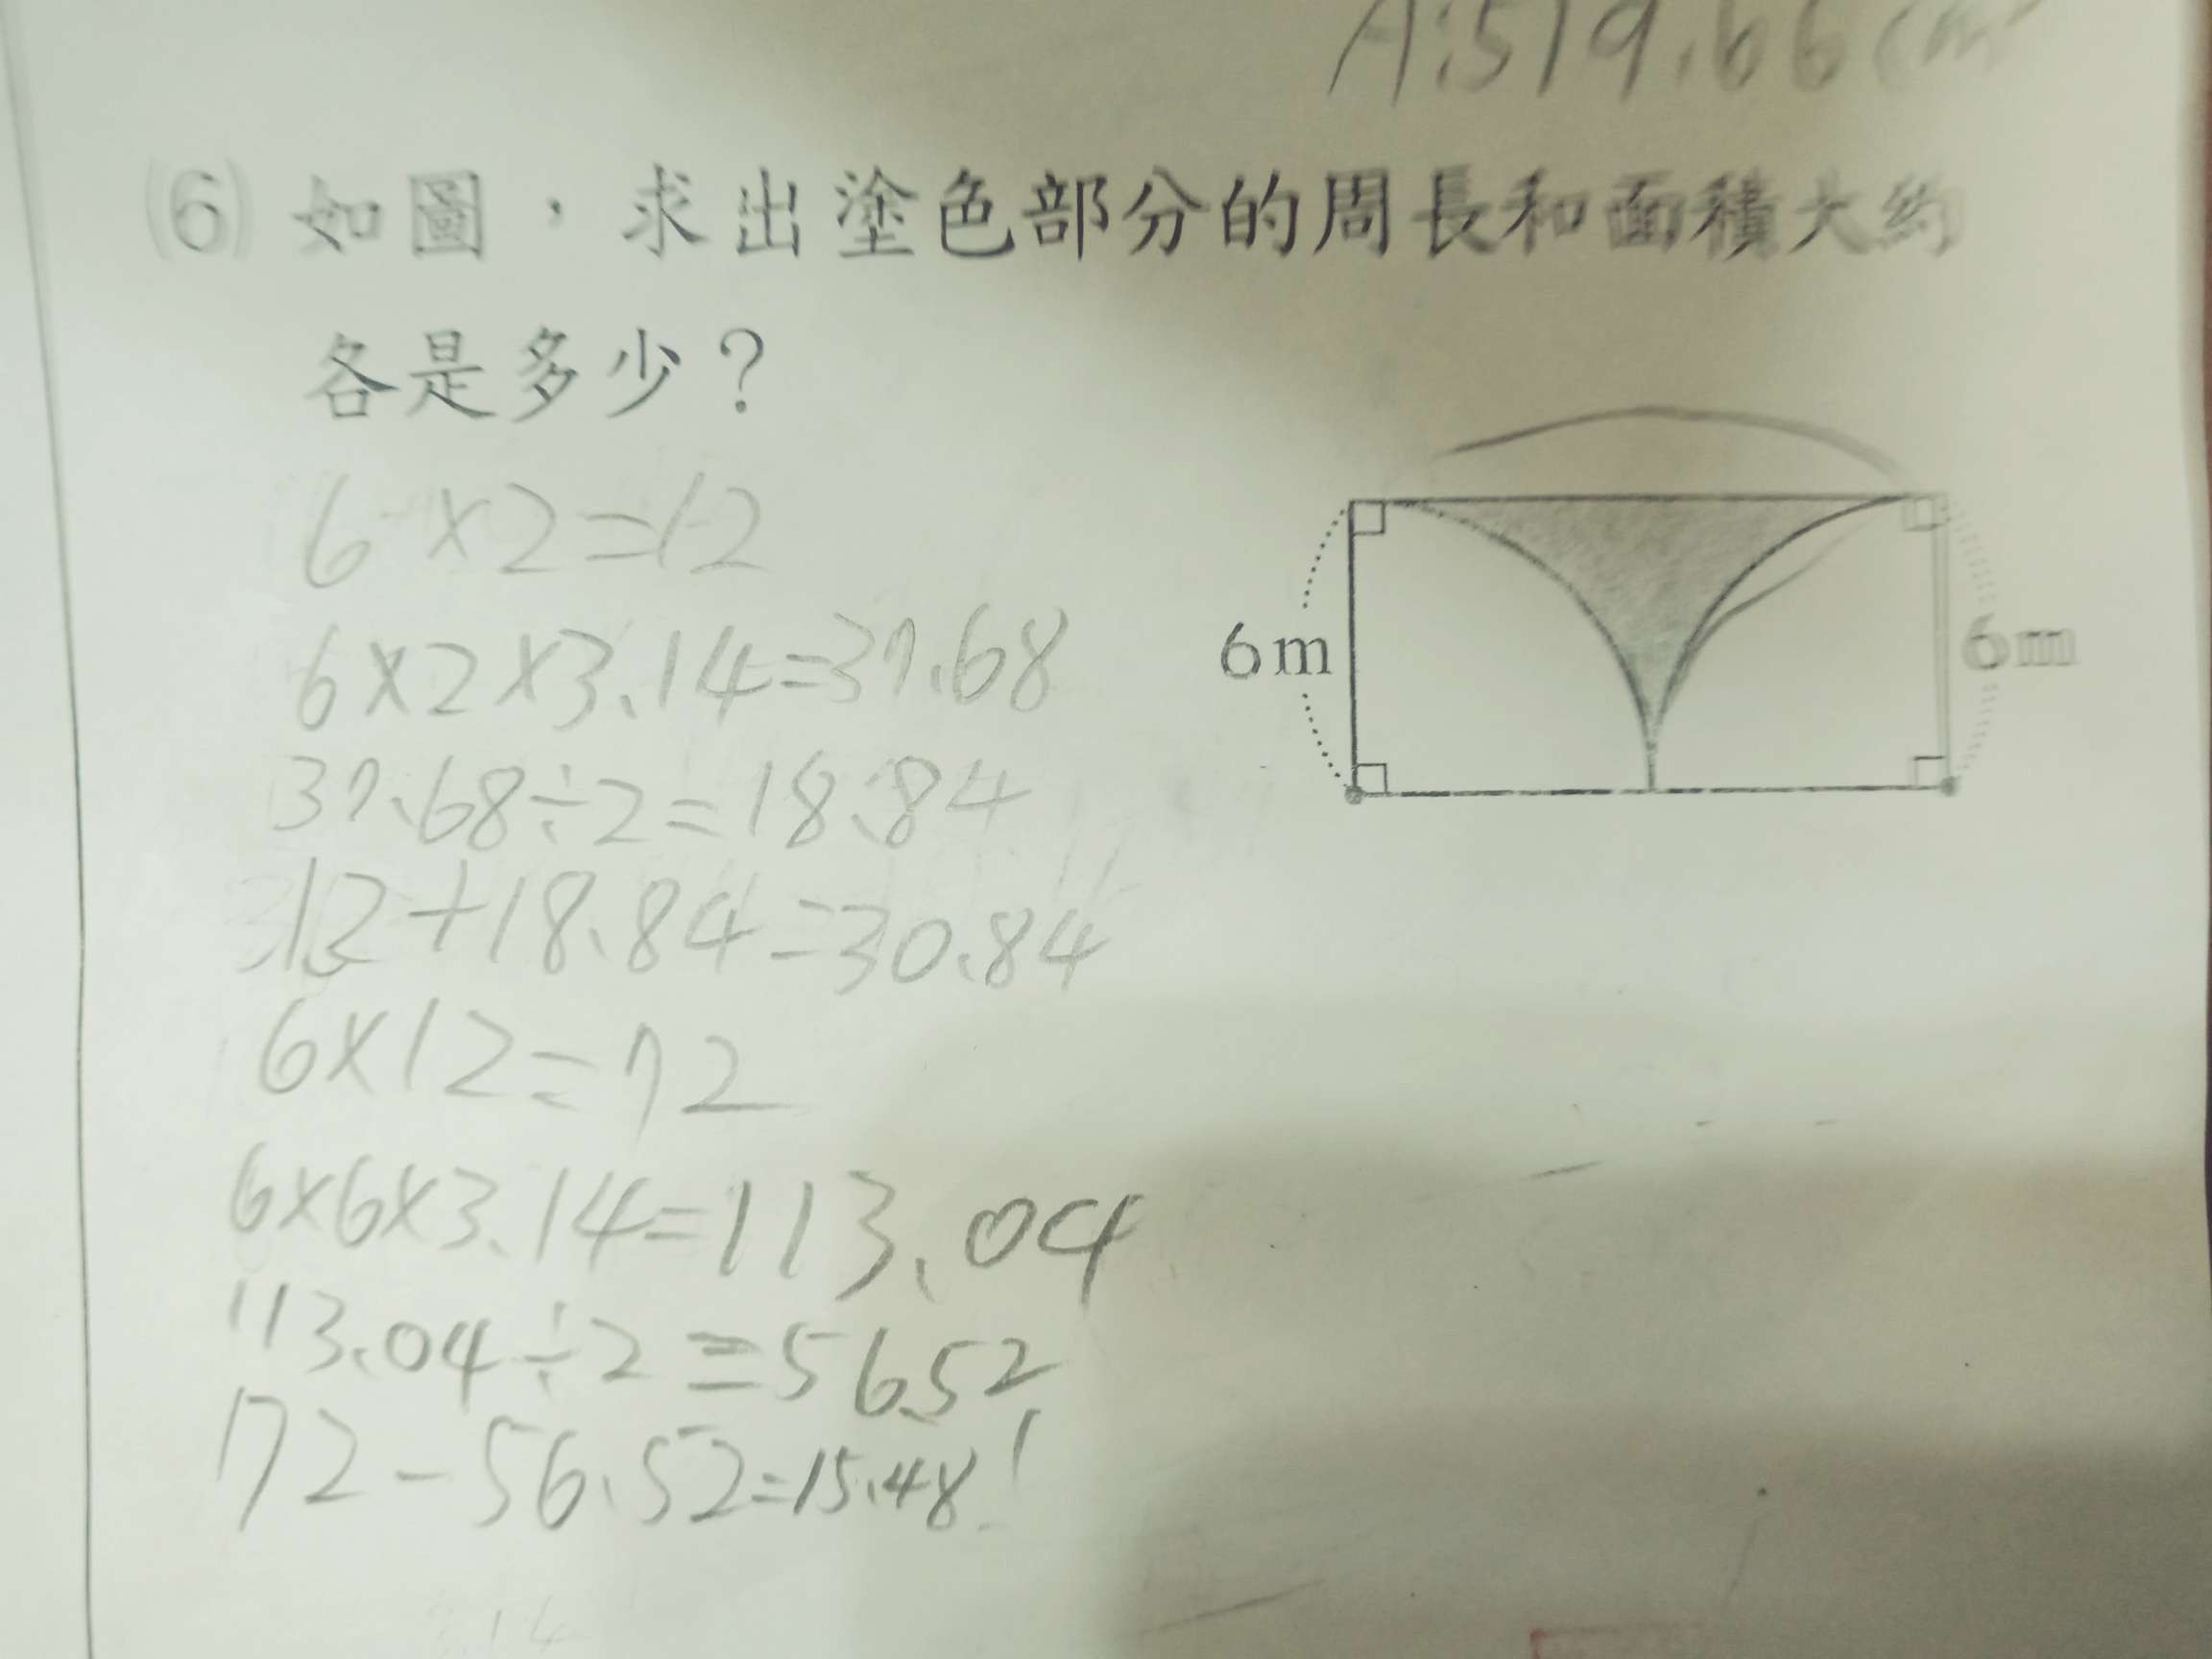 A:519.66cm²
(6) 如圖，求出塗色部分的周長和面積大約
各是多少？
6m
6m
6×2=12
6×2×3.14=37.68
37.68÷2=18.84
12+18.84=30.84
6×12=72
6×6×3.14=113.04
113.04÷2=56.52
72-56.52=15.48